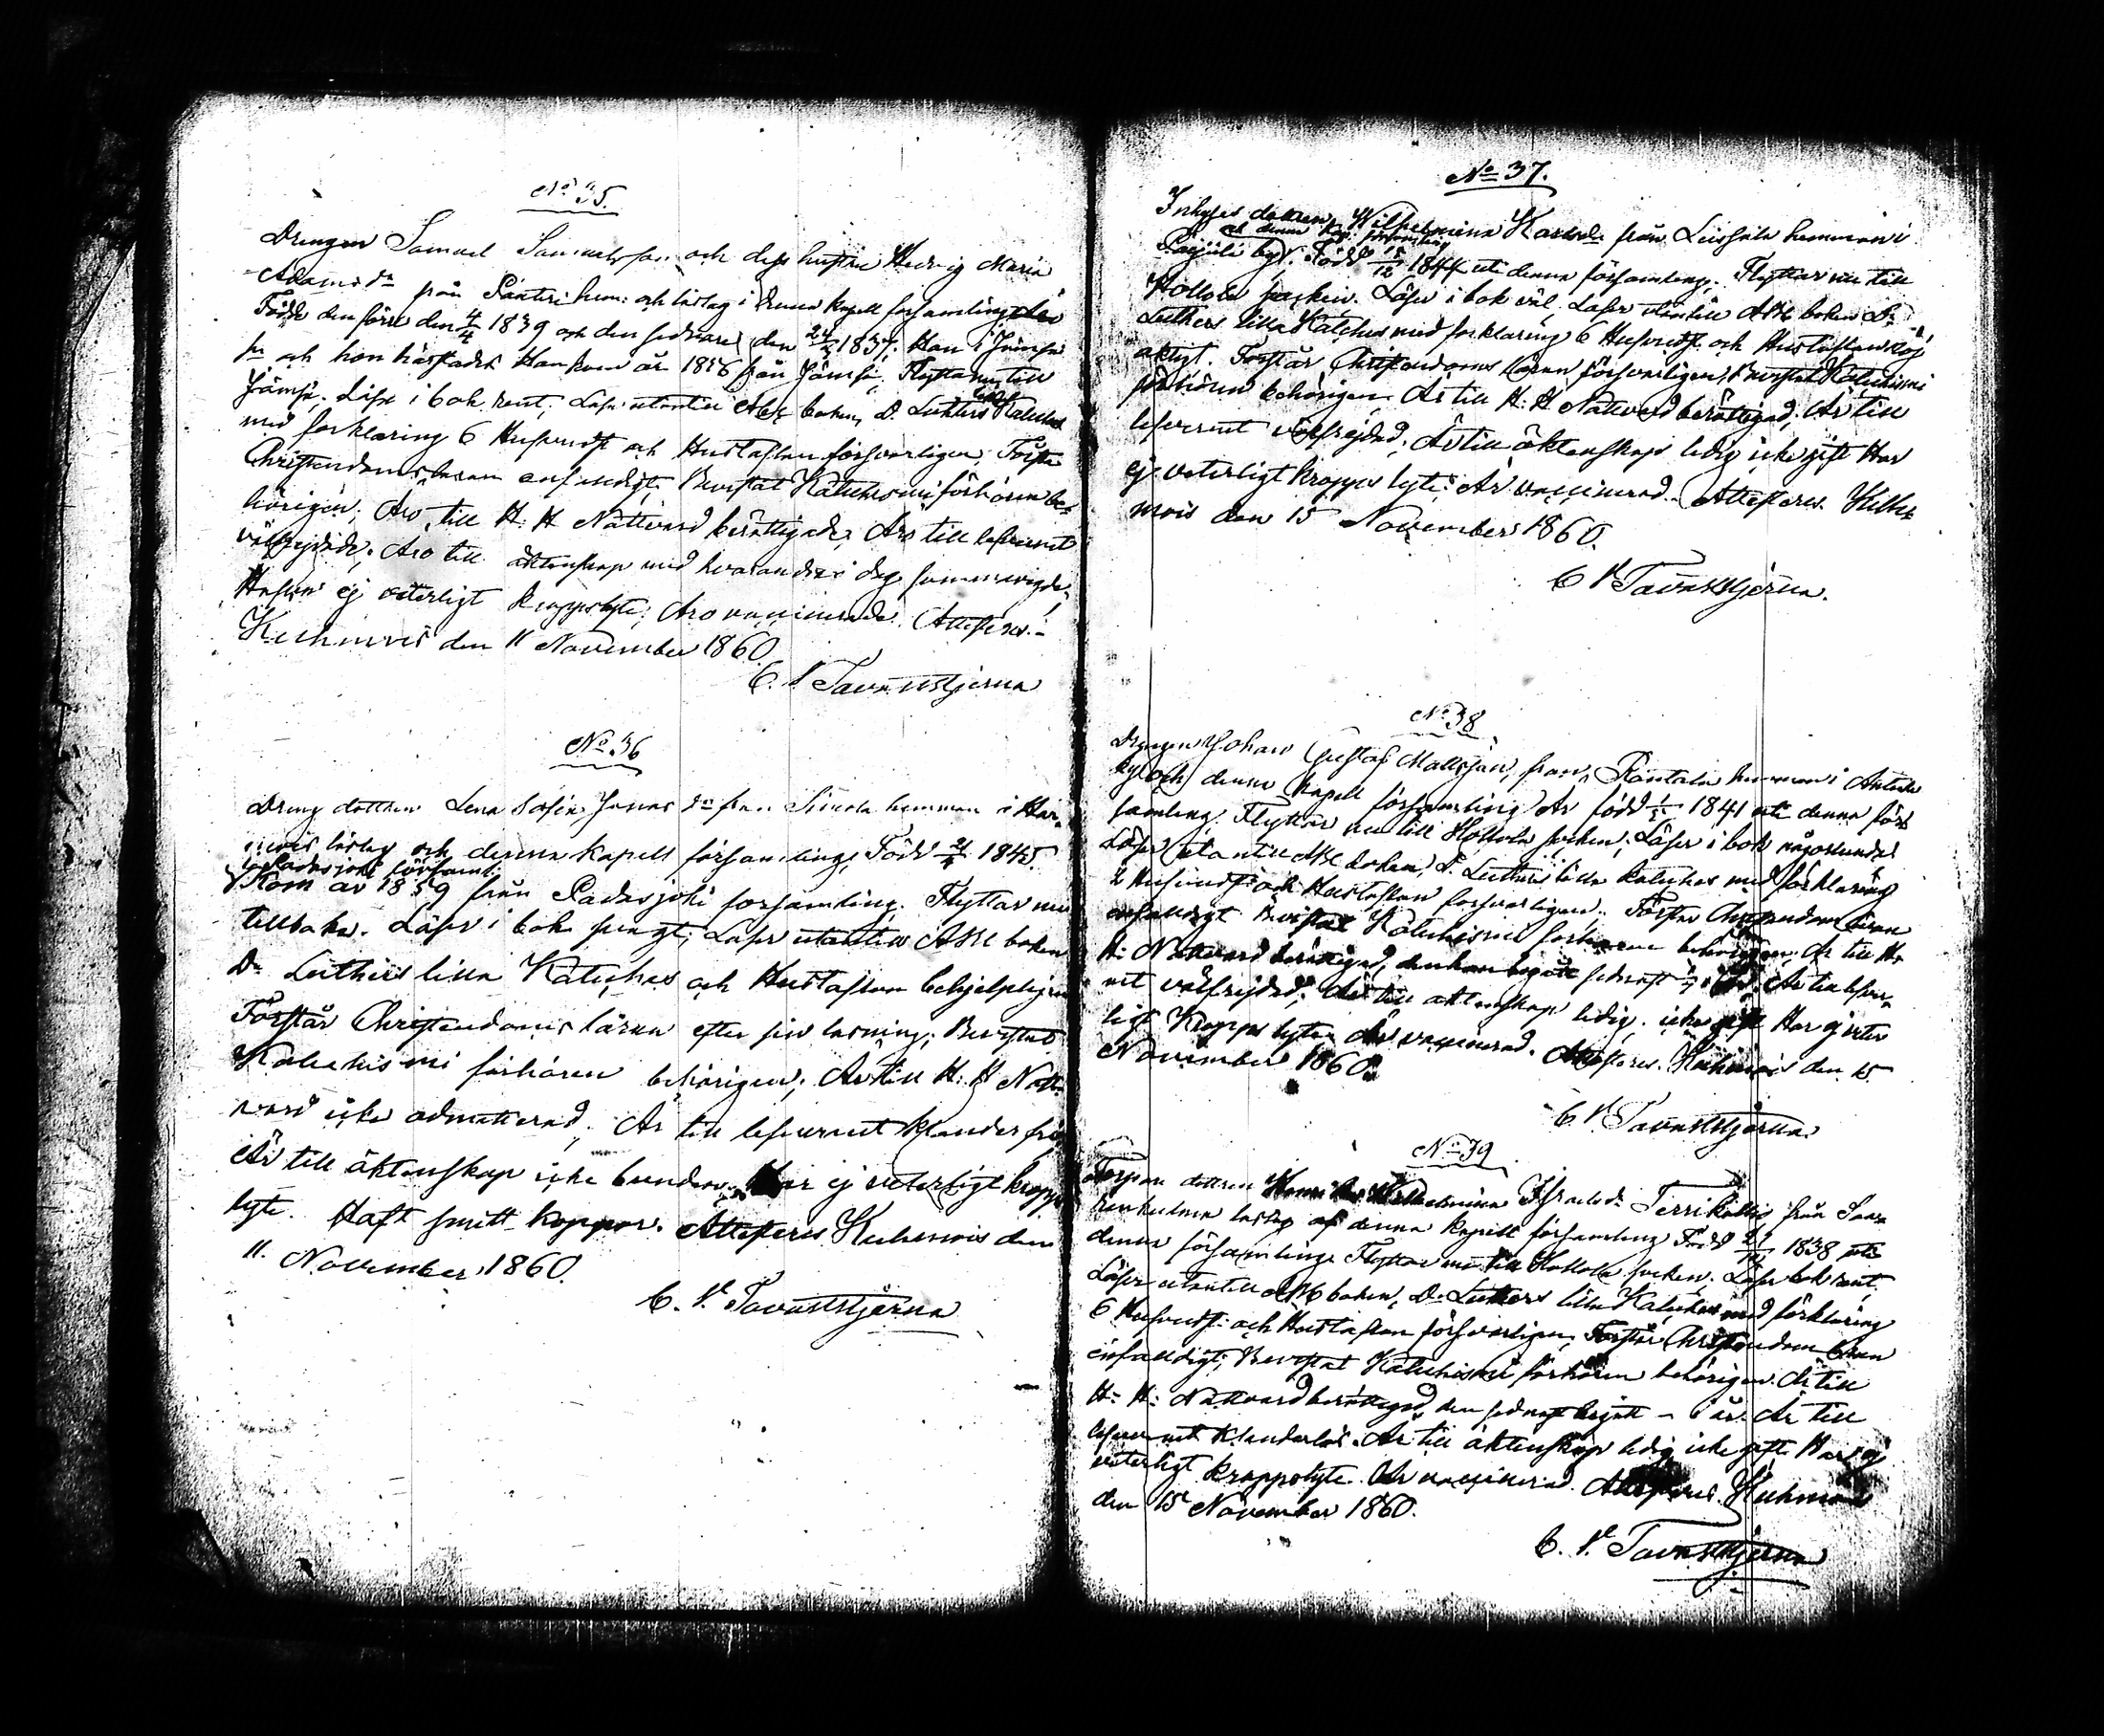 No 35.
Drengen Samuel Samuelsson och dess hustru Hedvig Maria
Adamsdr från Päntiri hem: och lästag i denna kapell församling
Född den förre den 4/4 1839 och den sednare den 1837. Han i Jämsä
och hon härstades Han kom år 1856 från Jämsä. Flytta nu till
Jämsä. Läsa i bok rent. Läsa utantill Abc boken, D. Luthers lilla Kateches
med förklaring 6 Hufvudst och Hustaflan försvarligen Förstå
Christendomsläran enfaldigt Bevistat Katechismi förhören be-
hörigen; Äro till H. H Nattvard berättigade; Äro till lefvernet
välfrejdade. Äro till äktenskap med hvarandra i dag sammanvigde.
Hafva ej veterligt kroppslyte; Äro vaccinerade. Attesteras.-
Kuhmois den 11 November 1860.
C. A Tavaststjerna
No 36
Dreng dottren Lena Sofia Jonas dr från Simola hemman i Har-
mois lästag och denna Kapell församling, Född 1845
i Padasjoki församl.
Kom år 1859 från Padasjoki församling. Flyttar nu
tillbaka. Läser i bok svagt, Läser utantill Abc boken
Dr Luthers lilla Kateches och Hustaflan behjelpligen
Förstår Christendoms läran efter sin läsning; Bevistat
Katechismi förhören behörigen; Är till H: H Natt-
vard icke admitterad; Är till lefvernet klander fri
Är till äktenskap icke bunden. Har ej veterligt kropps
lyte. Haft smitt koppor. Attesteras Kuhmois den
11. November 1860.
C. A. Tavaststjerna
No 37.
Inhyses dottren Wilhelmina Karlsdr från Leissala hemman i
och denna Kap: församling
Pajula by. Född 15/12 1844 uti denna församling. Flyttar nu till
Hollola socken. Läser i bok väl, Läser utantill Abc boken Dr
Luthers lilla Kateches med förklaring 6 Hufvudst och Hustaflan
Förstår Christendoms läran försvarligen, Bevistat Katechismi
förhören behörigen Är till H: H Nattvard berättigad; Är till
lefvernet välfrejdad; Är till äktenskap ledig icke gift Har
ej veterligt kropps lyte; Är vaccinerad. Attesteras. Kuh-
mois den 15 November 1860.
C A Tavaststjerna.
No 38
Drengen Johan Gustaf Mattsson, från Rantala hemman i
by och denna Kapell församling Är född 1841 uti denna för-
samling. Flyttar nu till Hollola socken; Läser i bok någorlunda
Läser utantill Abc boken, D. Luthers lilla kateches med förklaring
2 Hufvudst och Hustaflan försvarligen. Förstår Christendoms läran
enfaldigt Bevistat Katechismi förhören behörigen; Är till H:
H: Nattvard berättigad, den han begått sednast Är till lefver-
net välfrejdad; Är till äktenskap ledig. icke gift Har ej veter
ligt Kropps lyte Är vaccinerad. Attesteras. Kuhmois den 15
November 1860.
C. A Tavaststjerna
No 39
Torpare dottren Wilhelmina Israelsdr Terrikallio från
lästag af denna kapell församling Född 1838 uti
denna församling Flyttar nu till Hollola socken. Läser bok rent,
Läser utantill Abc boken, Dr Luthers lilla Kateches med förklaring
6 Hufvudst: och Hustaflan försvarligen, Förstår Christendoms läran
enfaldigt; Bevistat Katechismi förhören behörigen. Är till
H: H: Nattvard berättigad den sednast begått i år. Är till
lefvernet klanderlös. Är till äktenskap ledig icke gift Har ej
veterligt kroppslyte. Är vaccinerad. Attesteras. Kuhmois
den 15 November 1860.
C. A. Tavaststjerna